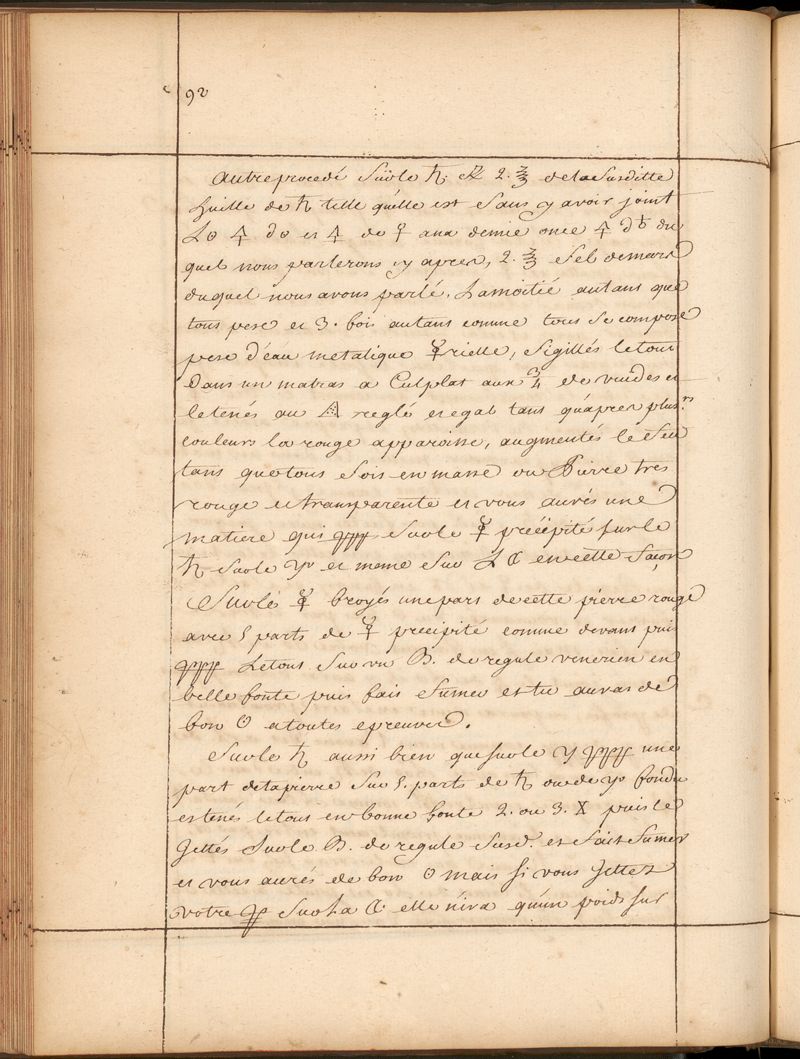 92
autre procedé Sur le ♄. ℞ 2. ℥ de la Susditte
huille de ♄ telle quélle est Sans y avoir joint
🜍 ☉ et 🜍 de ♀ aux demie once 🜍 du
quel nous parlerons cy apres, 2. ℥ Sel de mars
duquel nous avons parlé. La moitié autant que
tous pese et 3. fois autant comme tous Se composé
pese d'éau metalique ☿rielle, Sigillés le tout
Dans un matras a Culplat aux 3/4 de vuides et
le tenés au 🜂 reglé et egal tant qu'apres plus.rs
couleurs la rouge apparoisse, augmentés le feu
tans que tous Sois en masse ou Pierre tres
rouge et transparente et vous aurés une
matiere qui ppp Sur le ☿ precipité sur le
♄ Sur le ♃ et meme Sur La ☾ en cette façon
Sur le ☿ broyés une part de cette pierre rouge
avec 5 parts de ☿ precipité comme devant puis
ppp Le tout Sur un B. de regule venerien en
belle fonte puis fais fumer et tu auras de
bon ☉ a toutes epreuves.
Sur le ♄ aussi bien que sur le ♃ ppp une
part de ta pierre Sur 5. parts de ♄ ou de ♃ fondu
et tenés le tout en bonne fonte 2. ou 3. X puis le
Jettés Sur le B. de regule Susd. et fait fumer
et vous aurés de bon ☉ mais si vous Jettez
votre pp Sur La ☾ elle n'ira qu'un poids sur